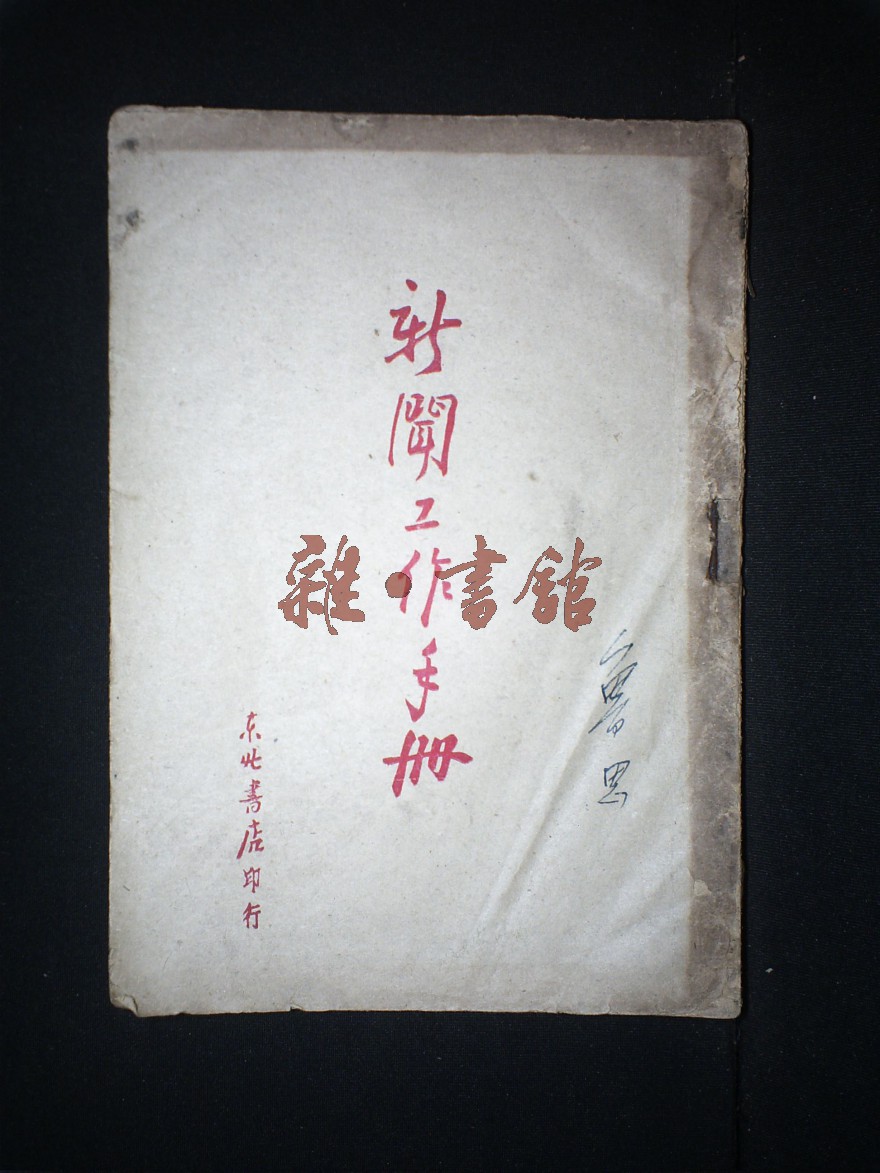 新聞工作手册
东北書店印行
魯思
雜·書館